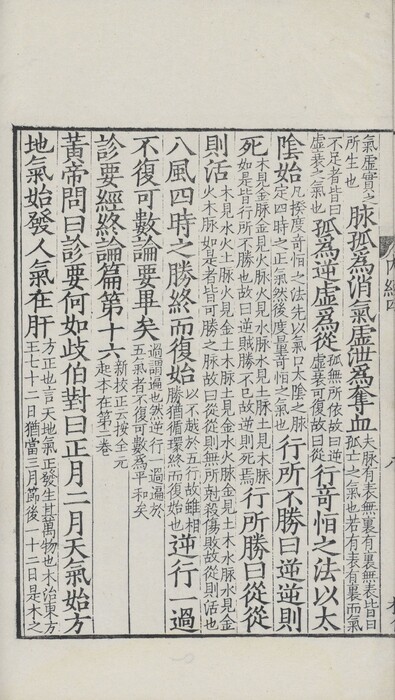 氣虛實之所生也脉孤為消氣虛泄為奪血夫脉有表無裏有裏無表皆曰孤亡之氣也若有表有裏而氣
不足者皆曰虛衰之氣也孤為逆虛為從孤無所依故曰逆虛衰可復故曰從行竒恒之法以太
陰始凡揆度竒恒之法先以氣口太陰之脉定四時之正氣然後度量竒恒之氣也行所不勝曰逆逆則
死木見金脉金見火脉火見水脉水見土脉土見木脉如是皆行所不勝也故曰逆賊勝不已故逆則死焉行所勝曰從從
則活木見水火土脉火見金土木脉土見金水火脉金見土木水脉水見金火木脉如是者皆可勝之脉故曰從從則無所尅殺傷敗故從則活也
八風四時之勝終而復始以不越於五行故雖相勝猶循環終而復始也逆行一過
不復可數論要畢矣過謂遍也然逆行一過遍於五氣者不復可數為平和矣
診要經終論篇第十六新校正云按全元起本在第二卷
黃帝問曰診要何如歧伯對曰正月二月天氣始方
地氣始發人氣在肝方正也言天地氣正發生其萬物也木治東方王七十二日猶當三月節後一十二日是木之